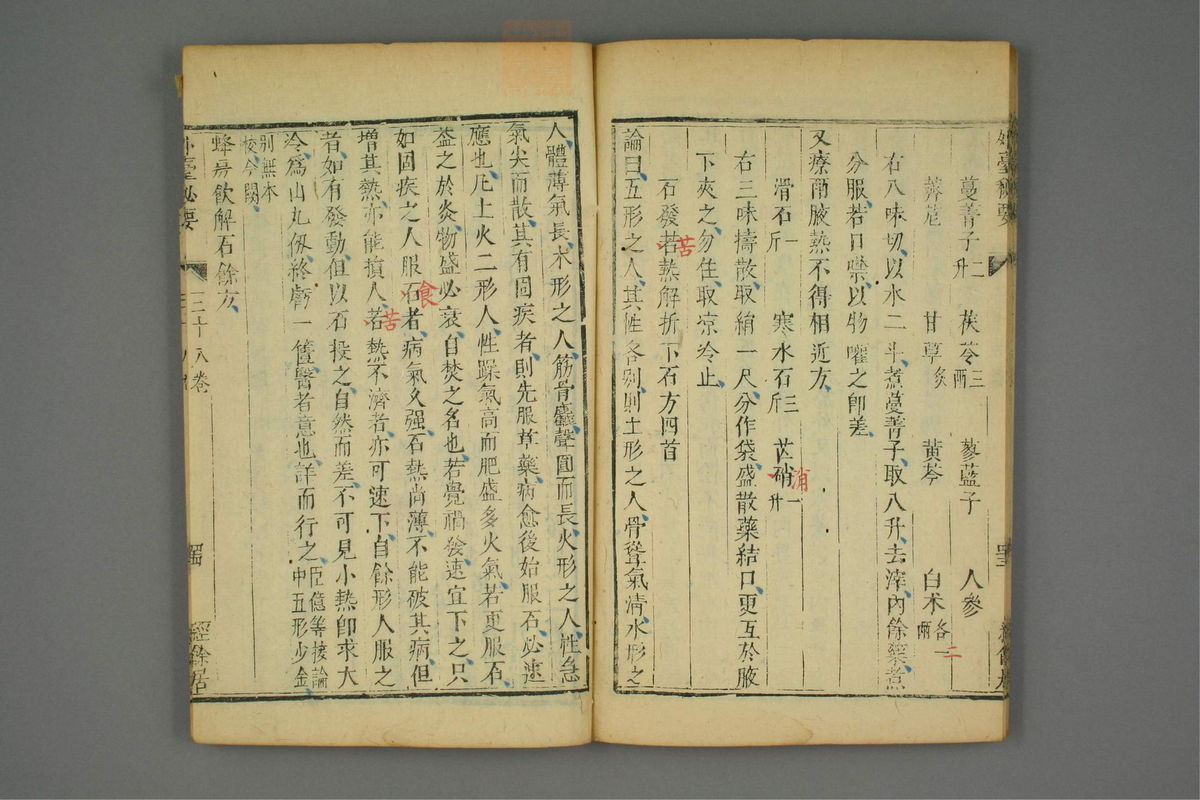 蔓菁子二升 茯苓三兩 蓼藍子 人參
薺苨 甘草炙 黃芩 白术各一兩
二
右八味切以水二斗煮蔓菁子取八升去滓內餘藥煮
分服若口噤以物嚾之卽差
又療腋熱不得相近方
滑石一斤 寒水石三斤 芒硝一升
浦
右三味擣散取絹一尺分作袋盛散藥結口更互於腋
下夾之勿住取凉冷止
石發若熱解折下石方四首
苦
論曰五形之人其性各别則土形之人骨聳氣清水形之
人體薄氣長木形之人筋骨麤聲圓而長火形之人性急
氣尖而散其有固疾者則先服草藥病愈後始服石必速
應也凡土火二形人性躁氣高而肥盛多火氣若更服石
益之於炎物盛必衰自焚之名也若覺禍發速宜下之只
如固疾之人服石者病氣久强石熱尚薄不能破其病但
食
增其熱亦能損人若熱不濟者亦可速下自餘形人服之
苦
者如有發動但以石投之自然而差不可見小熱卽求大
冷爲山九仭終虧一簣醫者意也詳而行之臣億等按論中五形少金
别無本校今闕
蜂房飲解石餘方
外臺秘要 三十八卷 經餘居